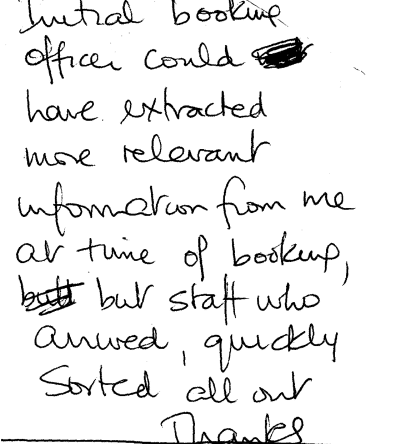 Initial booking
officer could
have extracted
more relevant
information from me
at time of booking,
but staff who
arrived, quickly
sorted all out
Thanks